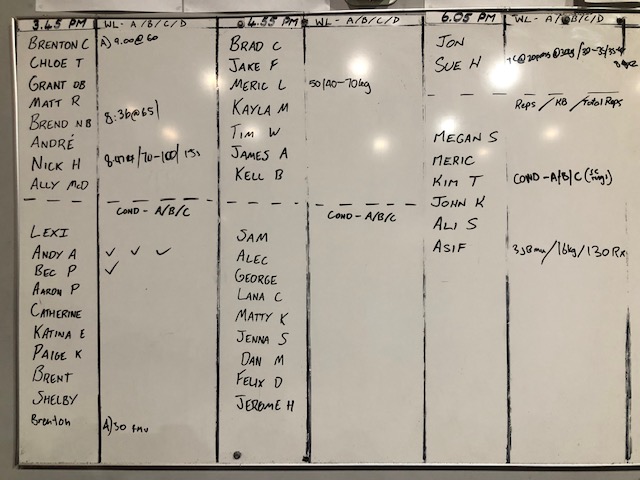 3.45 PM WL - A/B/C/D
BRENTON C A) 9.00@60
CHLOE T
GRANT DB
MATT R
BREND NB 8:36@65/
ANDRÉ
NICK H /70-100/
ALLY McD
COND - A/B/C
LEXI
ANDY A ✓ ✓ ✓
BEC P ✓
AARON P
CATHERINE
KATINA E
PAIGE K
BRENT
SHELBY
Brenton A) 30
4.55 PM WL - A/B/C/D
BRAD C
JAKE F
MERIC L 50/40-70kg
KAYLA M
TIM W
JAMES A
KELL B
COND - A/B/C
SAM
ALEC
GEORGE
LANA C
MATTY K
JENNA S
DAN M
FELIX D
JEROME H
6.05 PM WL - A/B/C/D
JON
SUE H
Reps / KB / Total Reps
MEGAN S
MERIC
KIM T COND - A/B/C
JOHN K
ALI S
ASIF /16kg/130 Rx